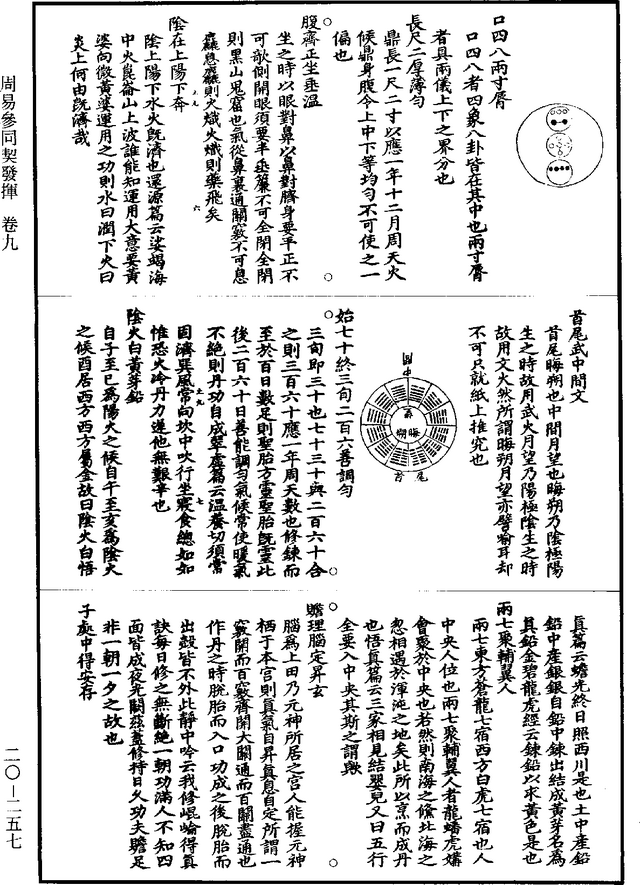 口四八兩寸脣
口四八者四象八卦皆在其中也兩寸脣
者具兩儀上下之界分也
長尺二厚薄勻
鼎長一尺二寸以應一年十二月周天火
候鼎身腹令上中下等均勻不可使之一
偏也
腹齊正坐垂溫
坐之時以眼對鼻以鼻對臍身要平正不
可欹側開眼須要半垂簾不可全閉全閉
則黑山鬼窟也氣從鼻裏通關竅不可息
麤息麤則火熾火熾則藥飛矣
陰在上陽下奔
陰上陽下水火既濟也還源篇云娑竭海
中火崑崙山上波誰能知運用大意要黃
婆向微黃婆運用之功則水曰潤下火曰
炎上何由既濟哉
首尾武中間文
首尾晦朔也中間月望也晦朔乃陰極陽
生之時故用武火月望乃陽極陰生之時
故用文火然所謂晦朔月望亦譬喻耳却
不可只就紙上推究也
中間
晦朔
首
尾
始七十終三旬二百六善調勻
三旬即三十也七十三十與二百六十合
之則三百六十應一年周天數也修鍊而
至於百日數足則聖胎方靈聖胎既靈此
後二百六十日善能調勻氣候常使暖氣
不絕則丹功自成翠虛篇云溫養切須常
固濟巽風常向坎中吹行坐寢食總如如
惟恐火冷丹力遲他無艱辛也
陰火白黃芽鉛
自子至巳為陽火之候自午至亥為陰火
之候酉居西方西方屬金故曰陰火白悟
真篇云蟾光終日照西川是也土中產鉛
鉛中產銀銀自鉛中鍊出結成黃芽名為
真鉛金碧龍虎經云鍊鉛以求黃色是也
兩七聚輔翼人
兩七東方蒼龍七宿西方白虎七宿也人
中央人位也兩七聚輔翼人者龍蟠虎遶
會聚於中央也若然則南海之儵北海之
忽相遇於渾沌之地矣此所以烹而成丹
也悟真篇云三家相見結嬰兒又曰五行
全要入中央其斯之謂歟
贍理腦定昇玄
腦為上田乃元神所居之宮人能握元神
栖于本宮則真氣自昇真息自定所謂一
竅開而百竅齊開大關通而百關盡通也
作丹之時脫胎而入口功成之後脫胎而
出殼皆不外此靜中吟云我修崐崘得真
訣每日修之無斷絕一朝功滿人不知四
面皆成夜光闕茲蓋修持日久功夫贍足
非一朝一夕之故也
子處中得安存
周易參同契發揮 卷九
二〇－二五七